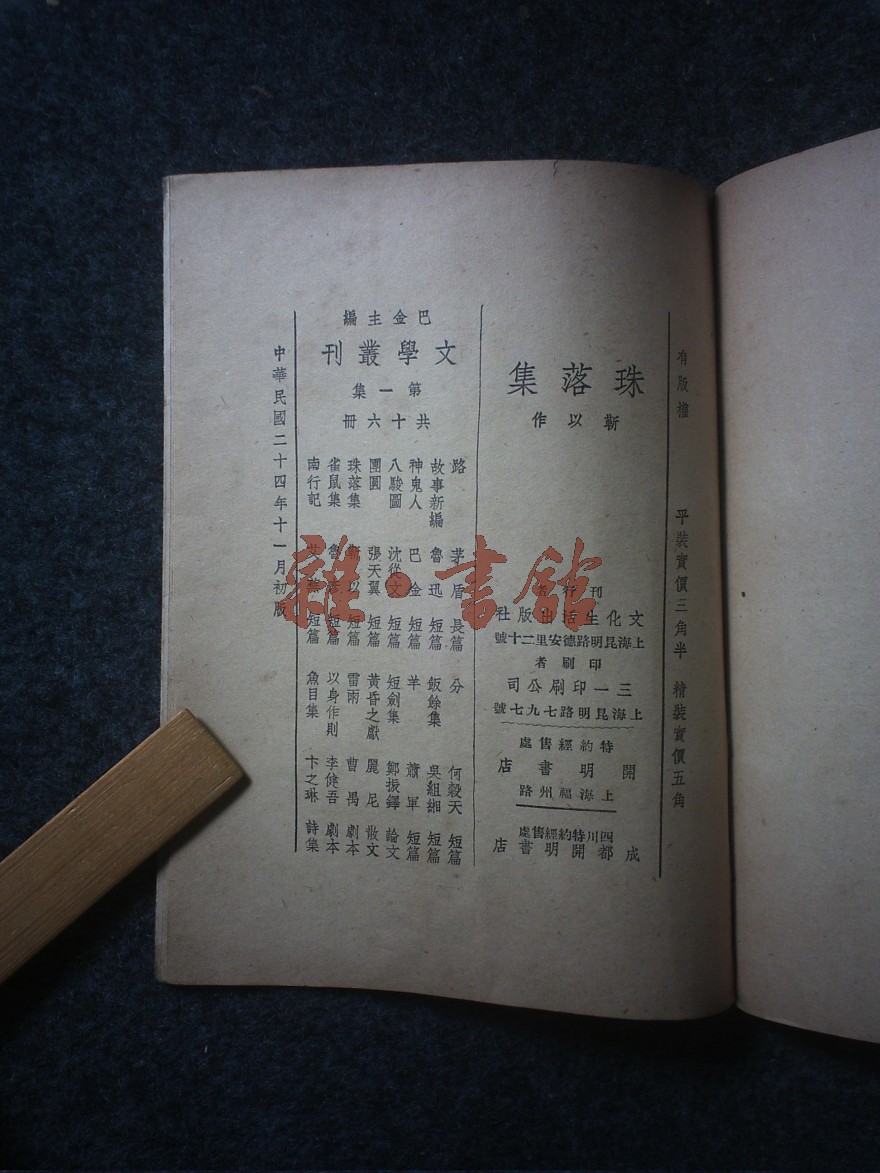 有版權
平裝實價三角半 精裝實價五角
珠落集
靳以作
刊行者
文化生活出版社
上海昆明路德安里二十號
印刷者
三一印刷公司
上海昆明路七九七號
特約經售處
開明書店
上海福州路
四川特約經售處
成都開明書店
巴金主編
文學叢刊
第一集
共十六冊
路 茅盾 長篇
故事新編 魯迅 短篇
神鬼人 巴金 短篇
八駿圖 沈從文 短篇
團圓 張天翼 短篇
珠落集 靳以 短篇
雀鼠集 魯彥 短篇
南行記 艾蕪 短篇
分 何穀天 短篇
飯餘集 吳組緗 短篇
羊 蕭軍 短篇
短劍集 鄭振鐸 論文
黃昏之獻 麗尼 散文
雷雨 曹禺 劇本
以身作則 李健吾 劇本
魚目集 卞之琳 詩集
中華民國二十四年十一月初版
雜·書館